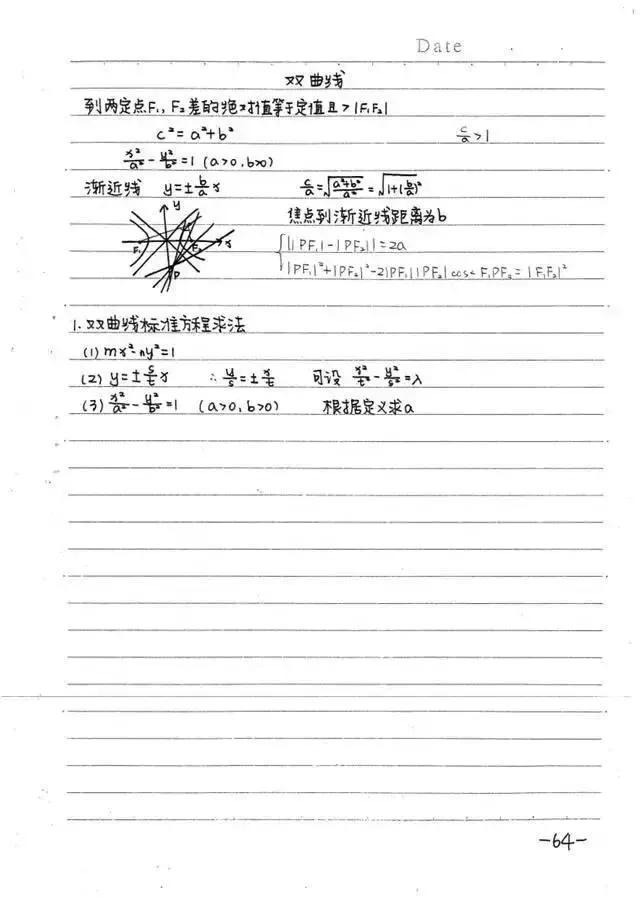 Date
双曲线
到两定点F₁,F₂差的绝对值等于定值且>|F₁F₂|
c²=a²+b² c/a>1
x²/a²-y²/b²=1(a>0,b>0)
渐近线 y=±b/a x c/a=√((a²+b²)/a²)=√(1+(b/a)²)
y
焦点到渐近线距离为b
F₁ F₂ x
||PF₁|-|PF₂||=2a
P
|PF₁|²+|PF₂|²-2|PF₁||PF₂|cos<F₁PF₂=|F₁F₂|²
1.双曲线标准方程求法
(1) mx²-ny²=1
(2) y=±s/t x ∴y/s=±x/t 可设 x²/t²-y²/s²=λ
(3) x²/a²-y²/b²=1 (a>0,b>0) 根据定义求a
-64-